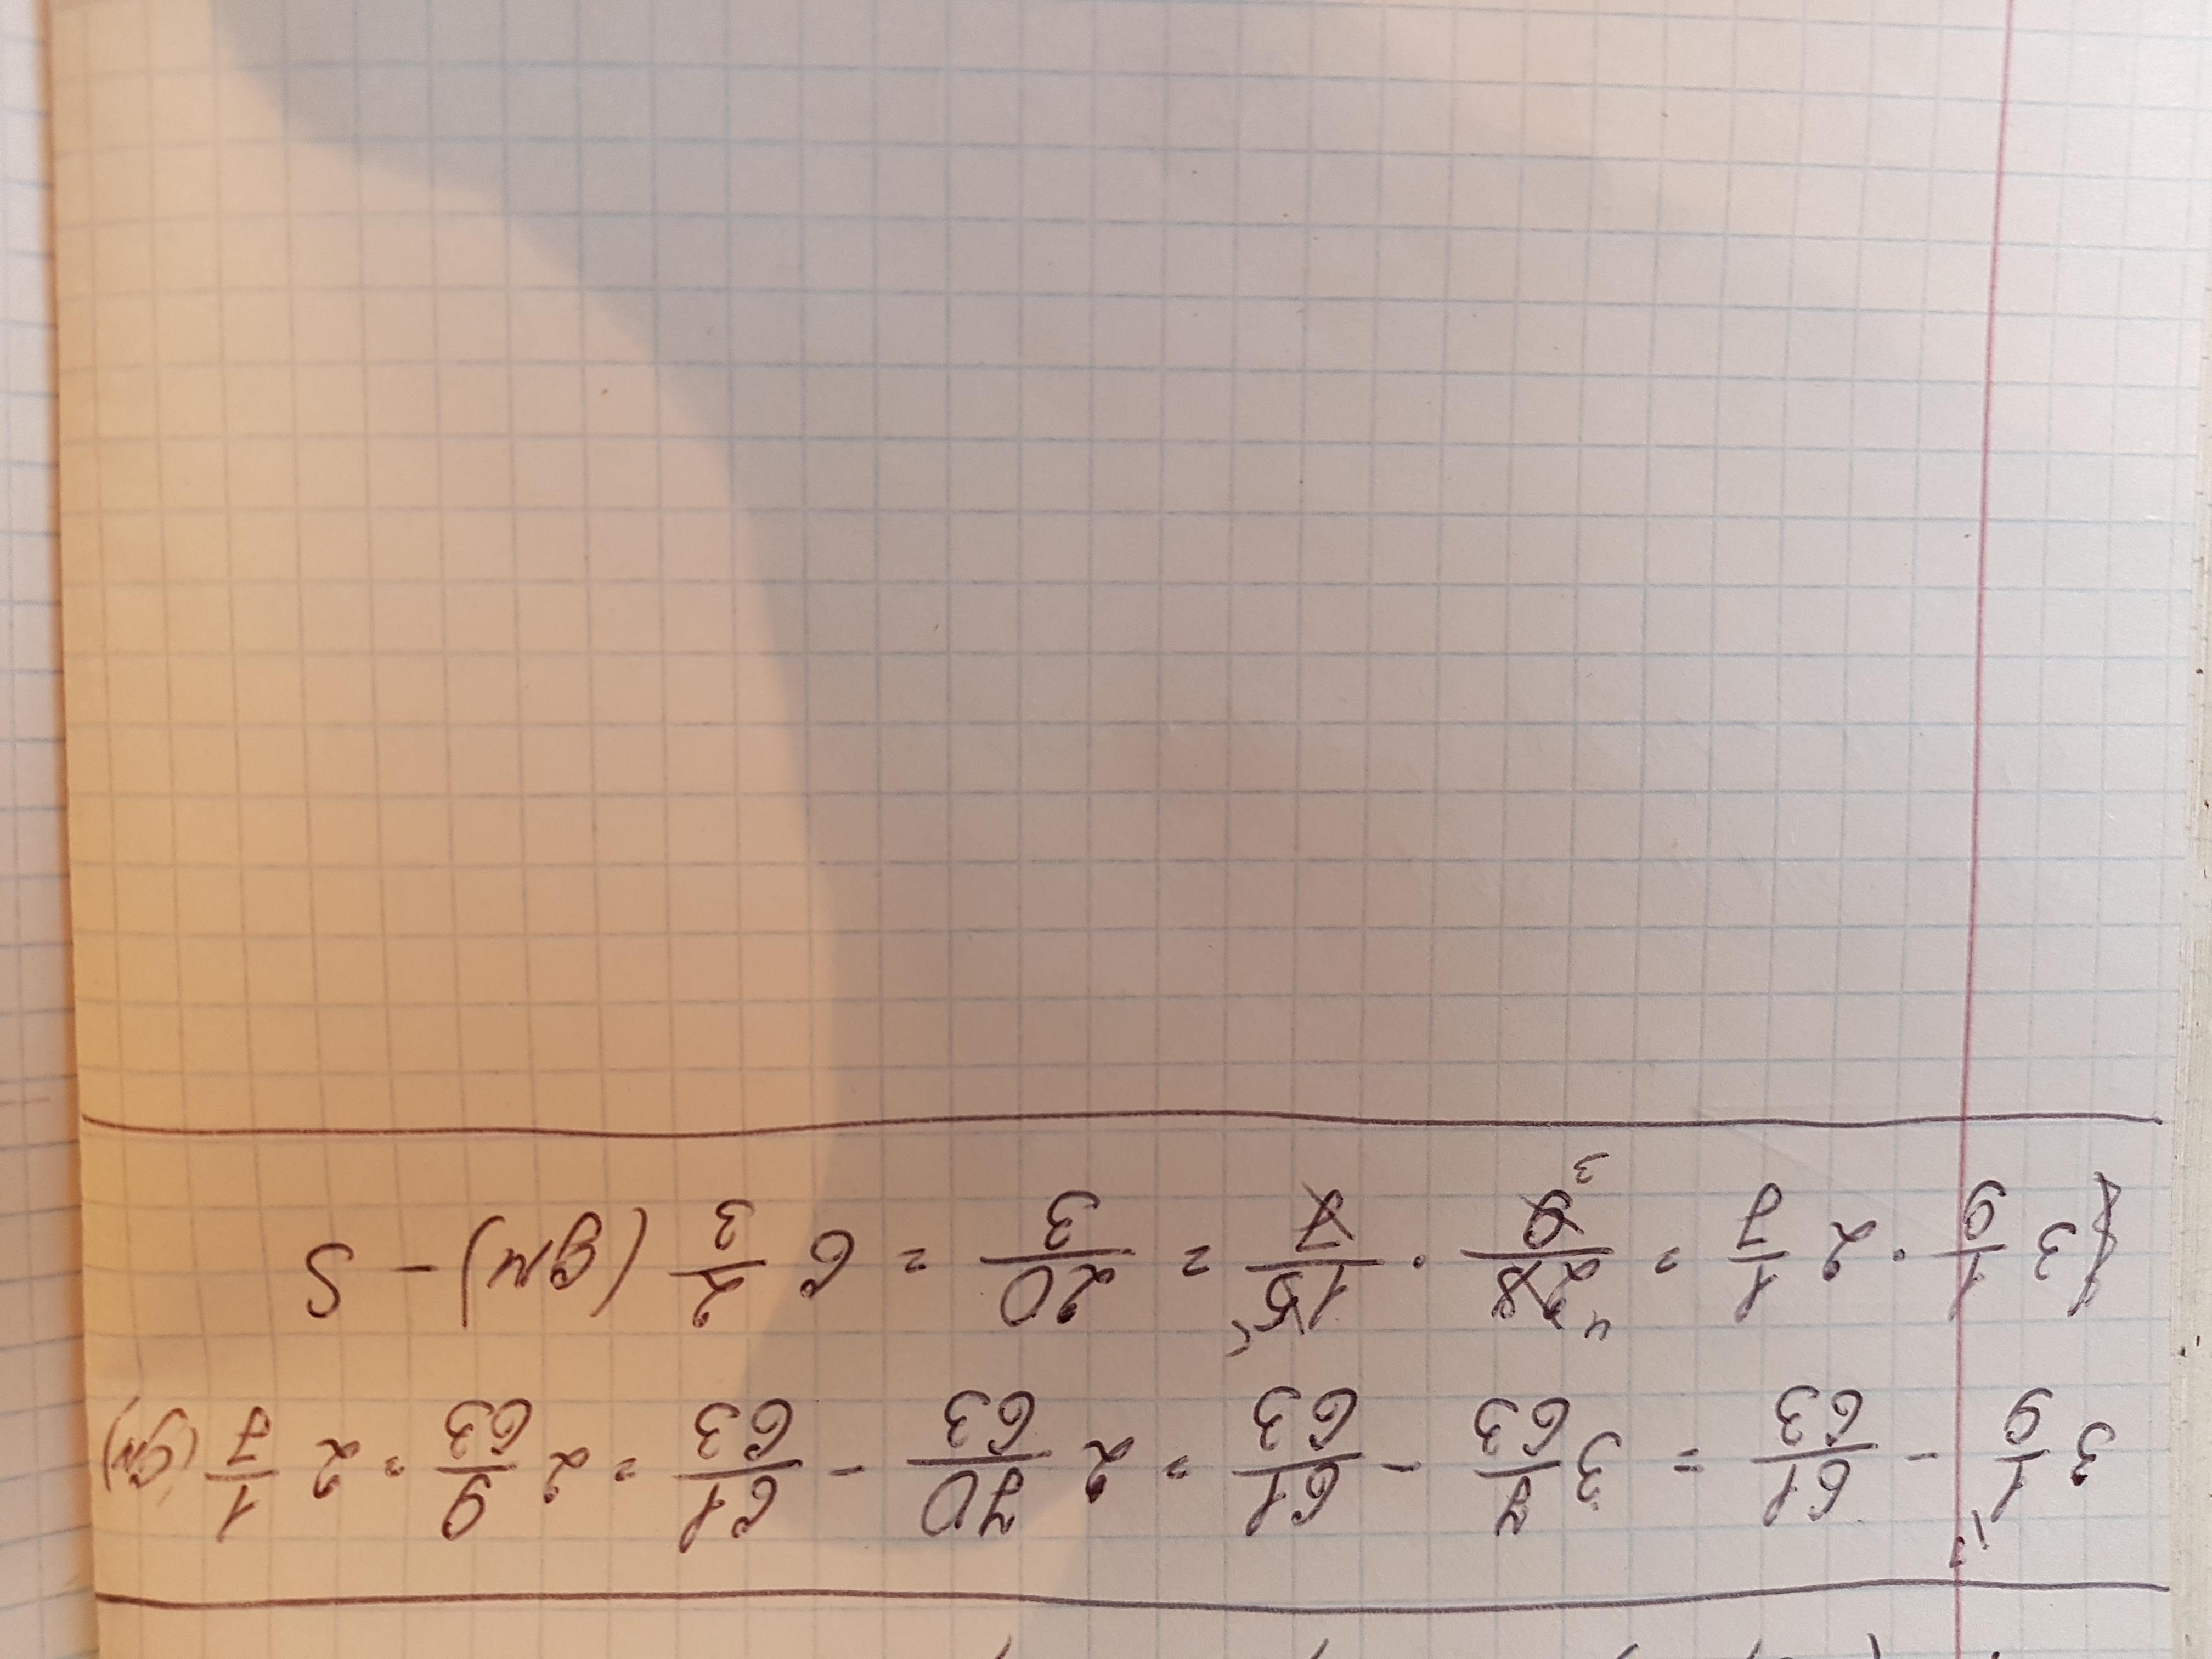 3 1/9 - 61/63 = 3 7/63 - 61/63 = 2 70/63 - 61/63 = 2 9/63 = 2 1/7 (дм)
3 1/9 · 2 1/7 = 28/9 · 15/7 = 20/3 = 6 2/3 (дм) - S